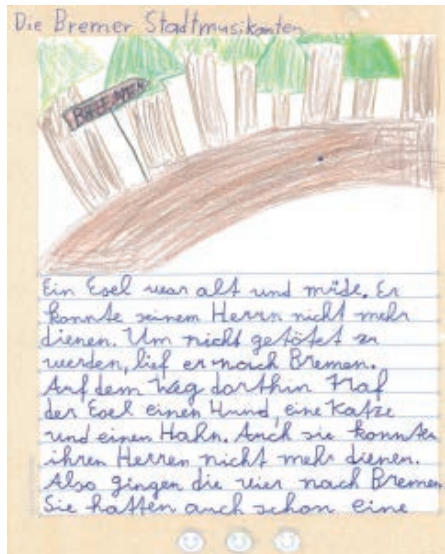 Die Bremer Stadtmusikanten
BREMEN
Ein Esel war alt und müde. Er
konnte seinem Herrn nicht mehr
dienen. Um nicht getötet zu
werden, lief er nach Bremen.
Auf dem Weg dorthin traf
der Esel einen Hund, eine Katze
und einen Hahn. Auch sie konnten
ihren Herren nicht mehr dienen.
Also gingen die vier nach Bremen
Sie hatten auch schon eine